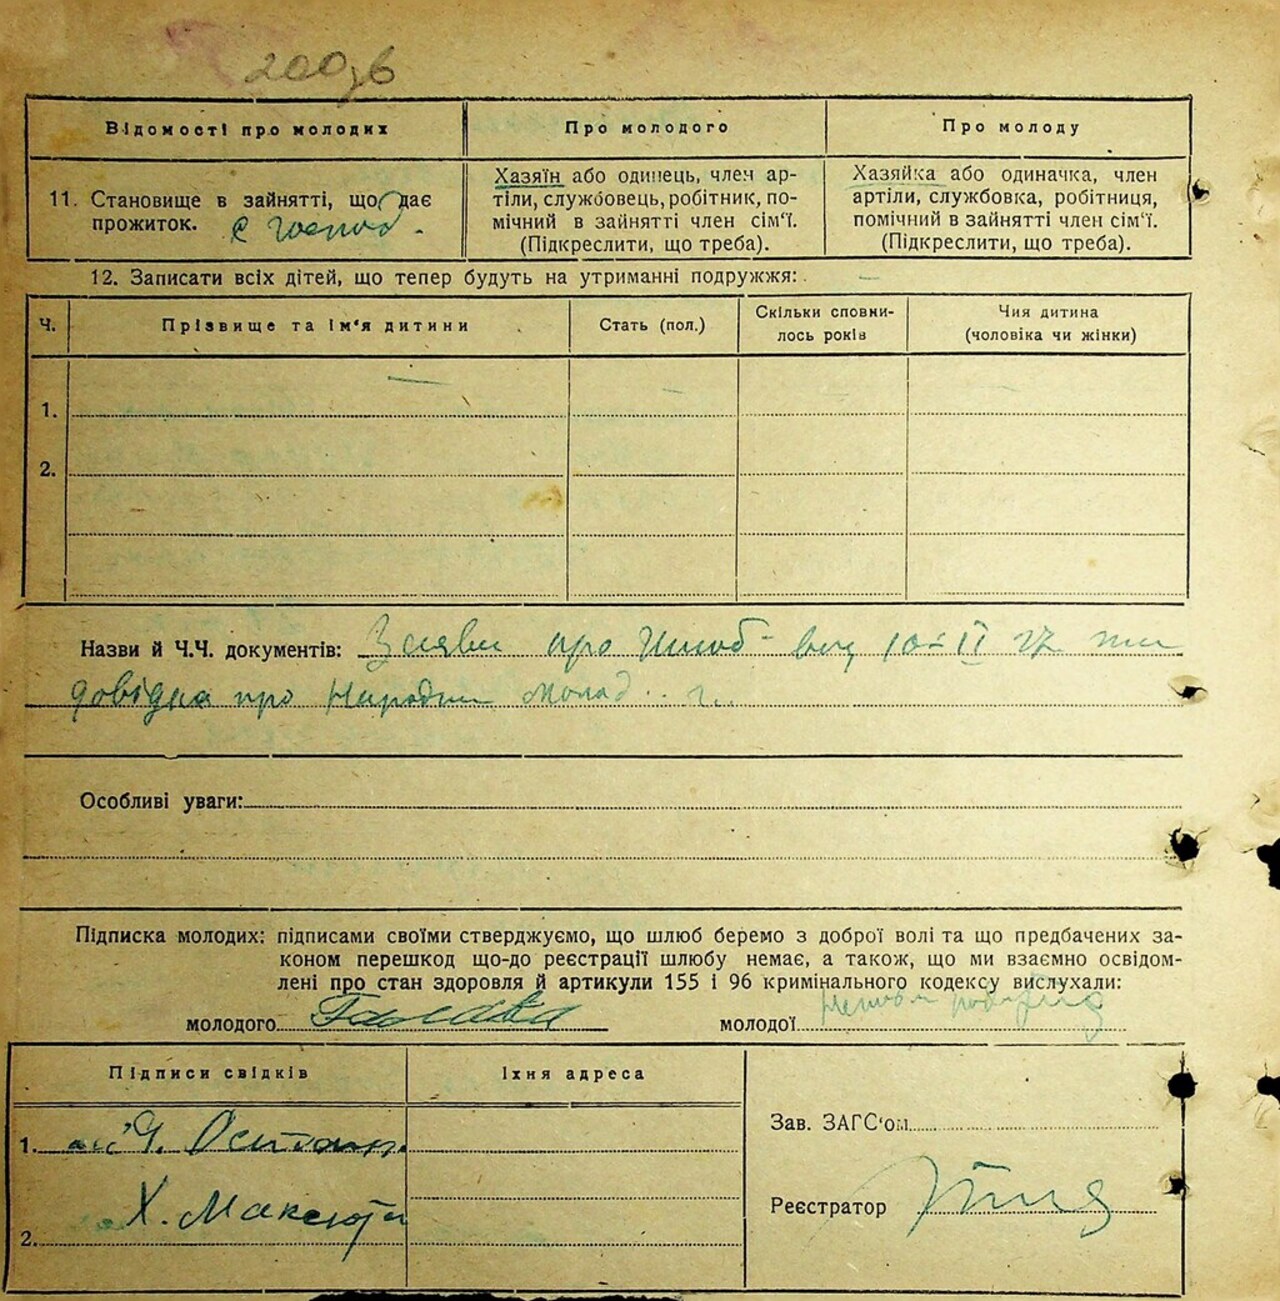 200зв
Відомості про молодих
Про молодого
Про молоду
11. Становище в зайнятті, що дає
прожиток.
Хазяїн або одинець, член ар-
тіли, службовець, робітник, по-
мічний в зайнятті член сім'ї.
(Підкреслити, що треба).
Хазяйка або одиначка, член
артіли, службовка, робітниця,
помічний в зайнятті член сім'ї.
(Підкреслити, що треба).
12. Записати всіх дітей, що тепер будуть на утриманні подружжя: —
Ч.
Прізвище та ім'я дитини
Стать (пол.)
Скільки сповни-
лось років
Чия дитина
(чоловіка чи жінки)
1.
2.
Назви й Ч.Ч. документів: про 10 II 27
довідка про молод
Особливі уваги:
Підписка молодих: підписами своїми стверджуємо, що шлюб беремо з доброї волі та що предбачених за-
коном перешкод що-до реєстрації шлюбу немає, а також, що ми взаємно освідом-
лені про стан здоровля й артикули 155 і 96 кримінального кодексу вислухали:
молодого
молодої
Підписи свідків
Їхня адреса
1.
Х. Максюта
2.
Зав. ЗАГС'ом
Реєстратор